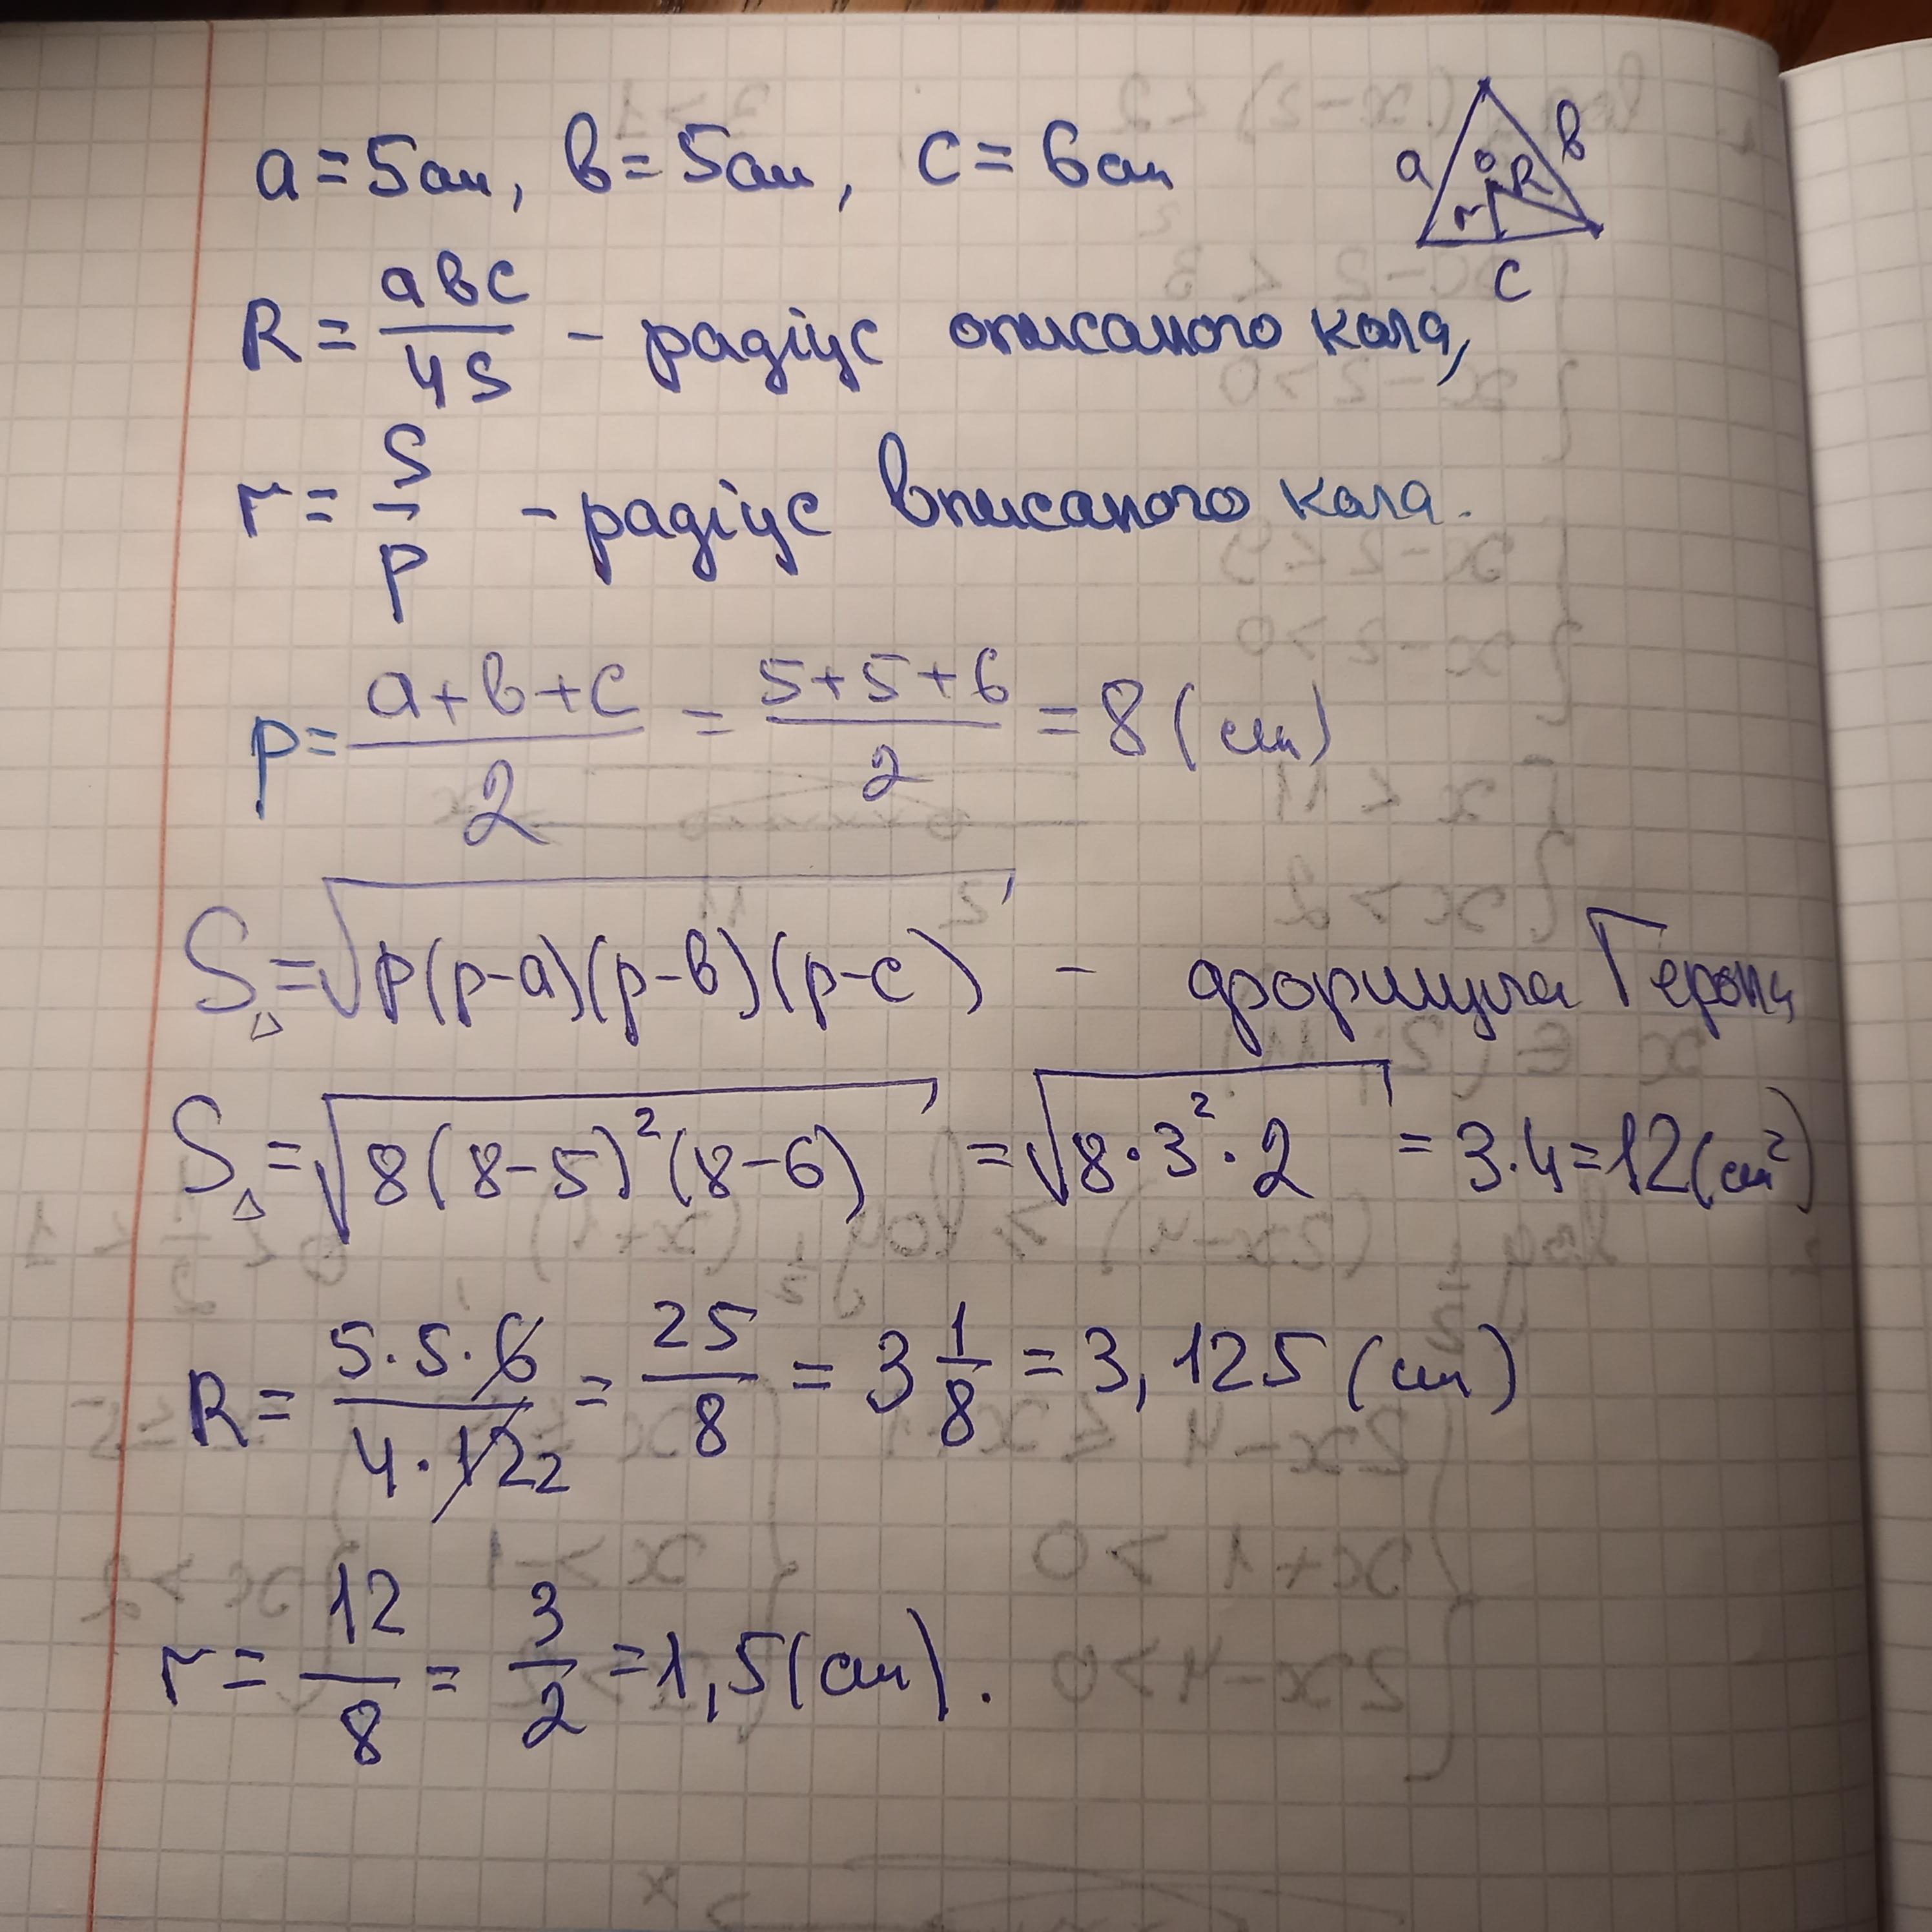 a = 5см, в = 5см, с = 6см
a в o R r c
R = авс/4S - радіус описаного кола,
r = S/p - радіус вписаного кола.
p = a+в+c/2 = 5+5+6/2 = 8 (см)
S△ = √p(p-a)(p-в)(p-c) - формула Герона
S△ = √8(8-5)²(8-6) = √8·3²·2 = 3·4 = 12 (см²)
R = 5·5·6/4·12 2 = 25/8 = 3 1/8 = 3,125 (см)
r = 12/8 = 3/2 = 1,5 (см).